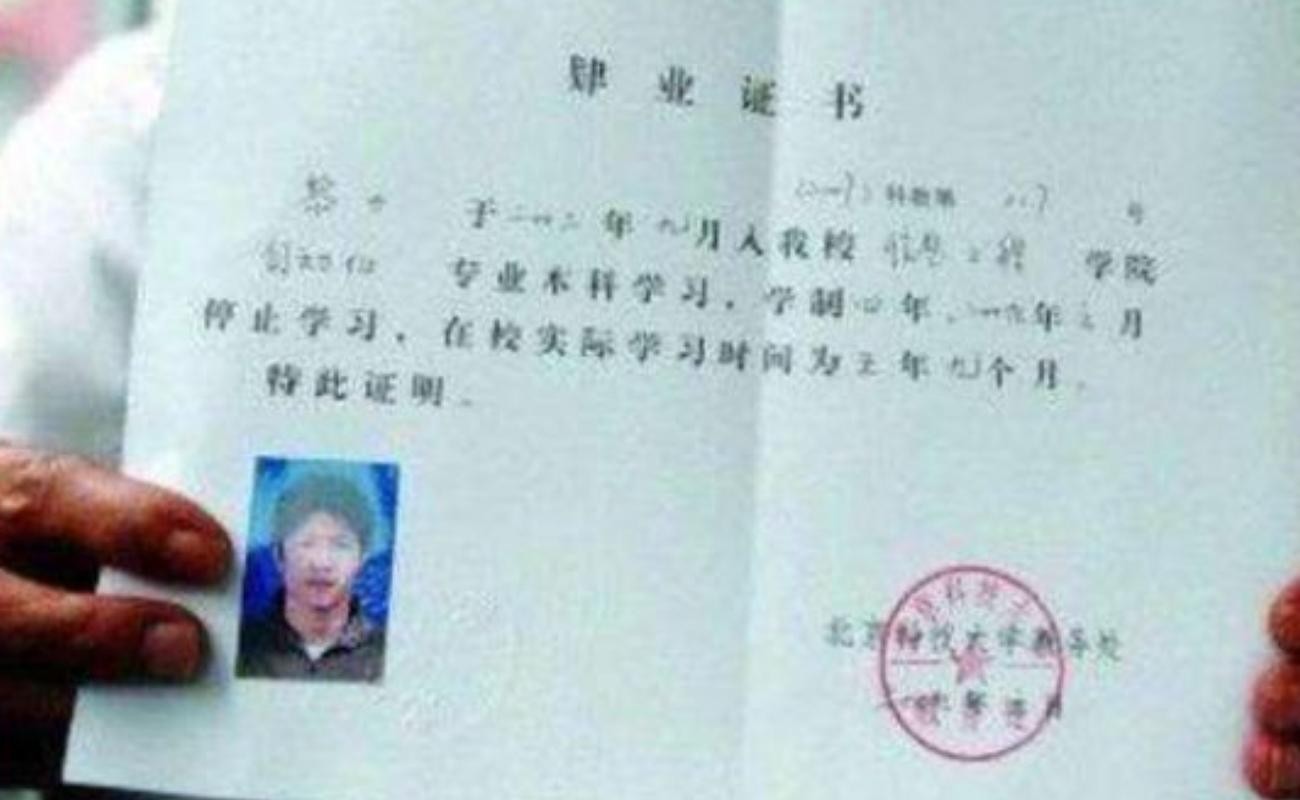 肄业证书
科教第 号
于二〇〇二年九月入我校信息工程学院
自动化 专业本科学习，学制四年，年 月
停止学习，在校实际学习时间为三年九个月。
特此证明。
北京科技大学教务处
年 月